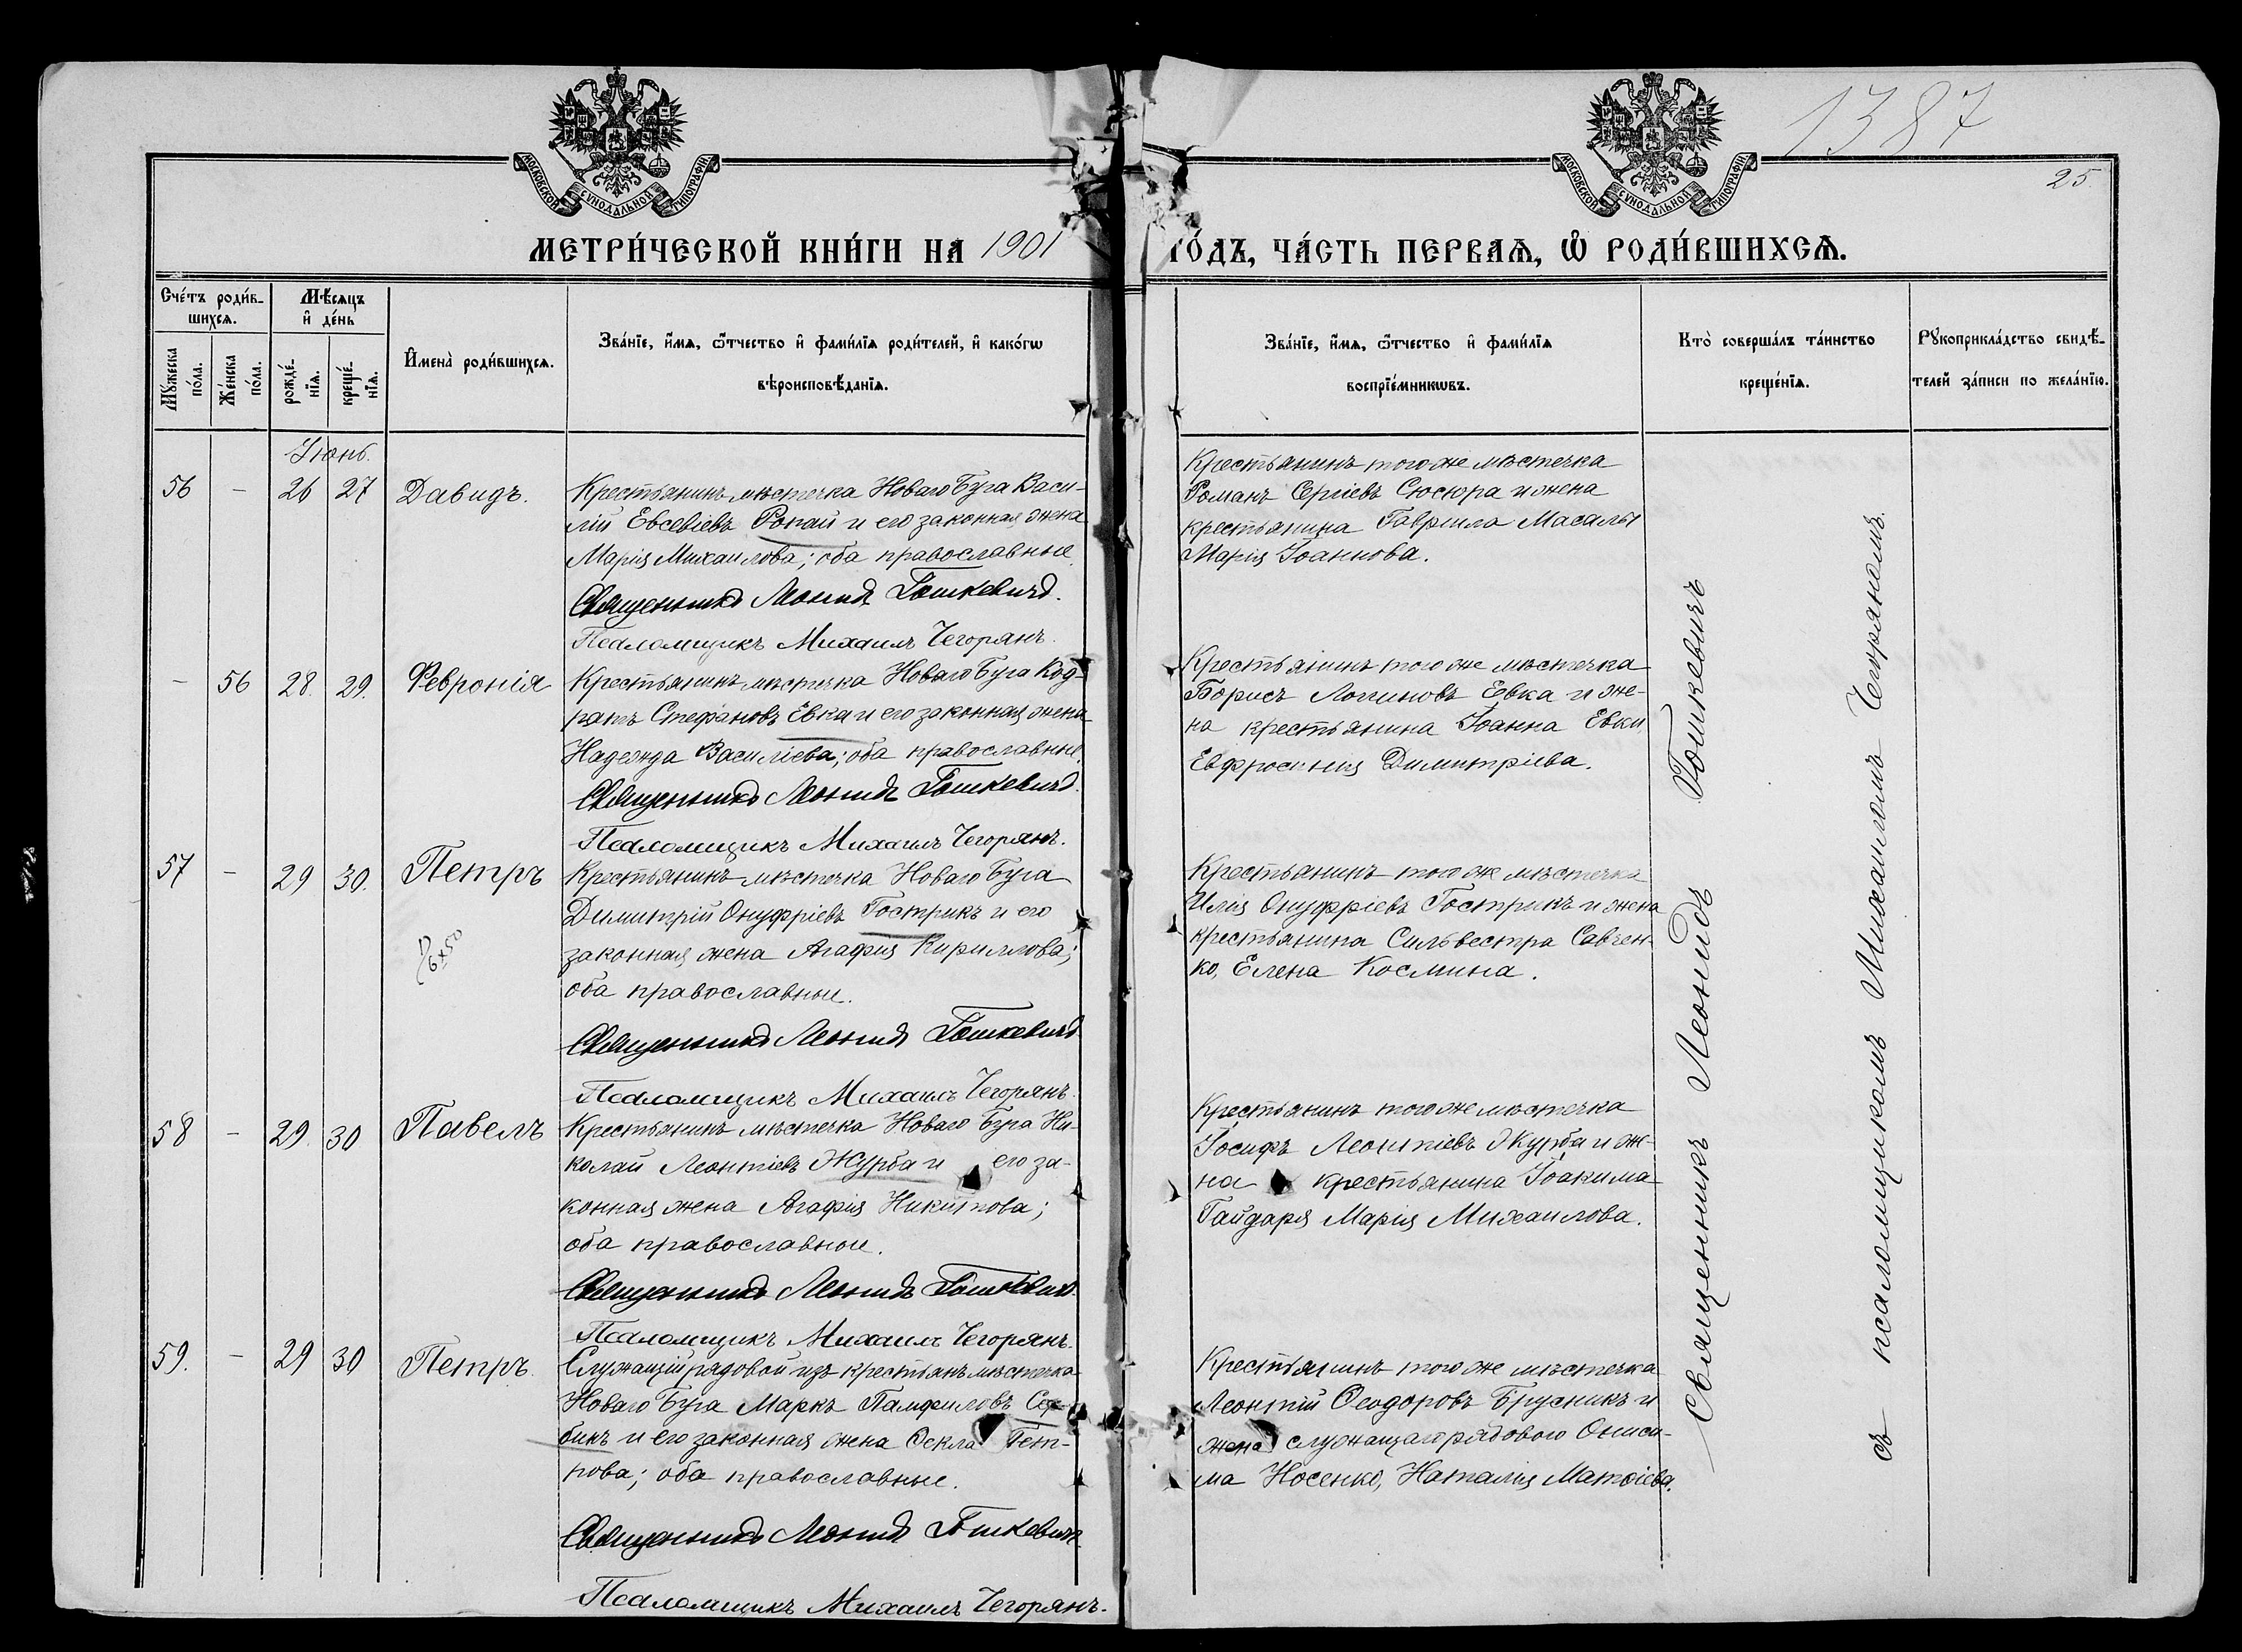 МОСКОВСКОЙ СУНОДАЛЬНОЙ ТИПОГРАФІИ
МОСКОВСКОЙ СУНОДАЛЬНОЙ ТИПОГРАФІИ
1387
25.
МЕТРИ́ЧЕСКОЙ КНИ́ГИ НА 1901 ГО́ДЪ, ЧА́СТЬ ПЕРВАѦ, Ѿ РОДИ́ВШИХСѦ.
Сче́тъ роди́в-
шихсѧ.
Мꙋ́жеска по́ла.
Же́нска по́ла.
Мѣ́сѧцъ
и҆ де́нь
рожде́-
нїѧ.
креще́-
нїѧ.
И҆мена̀ роди́вшихсѧ.
Зва́нїе, и҆́мѧ, ѻ҆́тчество и҆ фами́лїѧ роди́телей, и҆ како́гѡ
вѣроисповѣ́данїѧ.
Зва́нїе, и҆́мѧ, ѻ҆́тчество и҆ фами́лїѧ
воспрїе́мникѡвъ.
Кто̀ соверша́лъ та́инство
креще́нїѧ.
Рꙋкоприкла́дство свидѣ́-
телей за́писи по жела́нїю.
Іюнь.
56 - 26 27 Давидъ.
Крестьянинъ мѣстечка Новаго Буга Васи-
лій Евсевіевъ Рокай и его законная жена
Марія Михаилова; оба православные.
Священникъ Леонидъ Гошкевичъ.
Псаломщикъ Михаилъ Чегорянъ.
Крестьянинъ того же мѣстечка
Романъ Сергіевъ Сюсюра и жена
крестьянина Гавриила Масалы
Марія Іоаннова.
- 56 28. 29. Февронія
Крестьянинъ мѣстечка Новаго Буга Код-
ратъ Стефановъ Евка и его законная жена
Надежда Василіева; оба православные.
Священникъ Леонидъ Гошкевичъ.
Псаломщикъ Михаилъ Чегорянъ.
Крестьянинъ того же мѣстечка
Борисъ Логиновъ Евка и же-
на крестьянина Іоанна Евки,
Евфросинія Димитріева.
57 - 29 30. Петръ
Крестьянинъ мѣстечка Новаго Буга
Димитрій Онуфріевъ Гострикъ и его
законная жена Агафія Кириллова;
оба православные.
Священникъ Леонидъ Гошкевичъ
Псаломщикъ Михаилъ Чегорянъ.
Крестьянинъ того же мѣстечка
Илія Онуфріевъ Гострикъ и жена
крестьянина Сильвестра Савчен-
ко, Елена Космина.
58 - 29. 30 Павелъ
Крестьянинъ мѣстечка Новаго Буга Ни-
колай Леонтіевъ Журба и его за-
конная жена Агафія Никитова;
оба православные.
Священникъ Леонидъ Гошкевичъ
Псаломщикъ Михаилъ Чегорянъ.
Крестьянинъ того же мѣстечка
Іосифъ Леонтіевъ Журба и же-
на крестьянина Іоакима
Гайдаря Марія Михаилова.
59. - 29 30 Петръ.
Служащій рядовой изъ крестьянъ мѣстечка
Новаго Буга Маркъ Памфиловъ Сер-
бинъ и его законная жена Ѳекла Пет-
рова; оба православные.
Священникъ Леонидъ Гошкевичъ
Псаломщикъ Михаилъ Чегорянъ.
Крестьянинъ того же мѣстечка
Леонтій Ѳеодоровъ Брусникъ и
жена служащаго рядового Ониси-
ма Носенко, Наталія Матѳіева.
Священникъ Леонидъ Гошкевичъ
съ псаломщикомъ Михаиломъ Чегоряномъ.